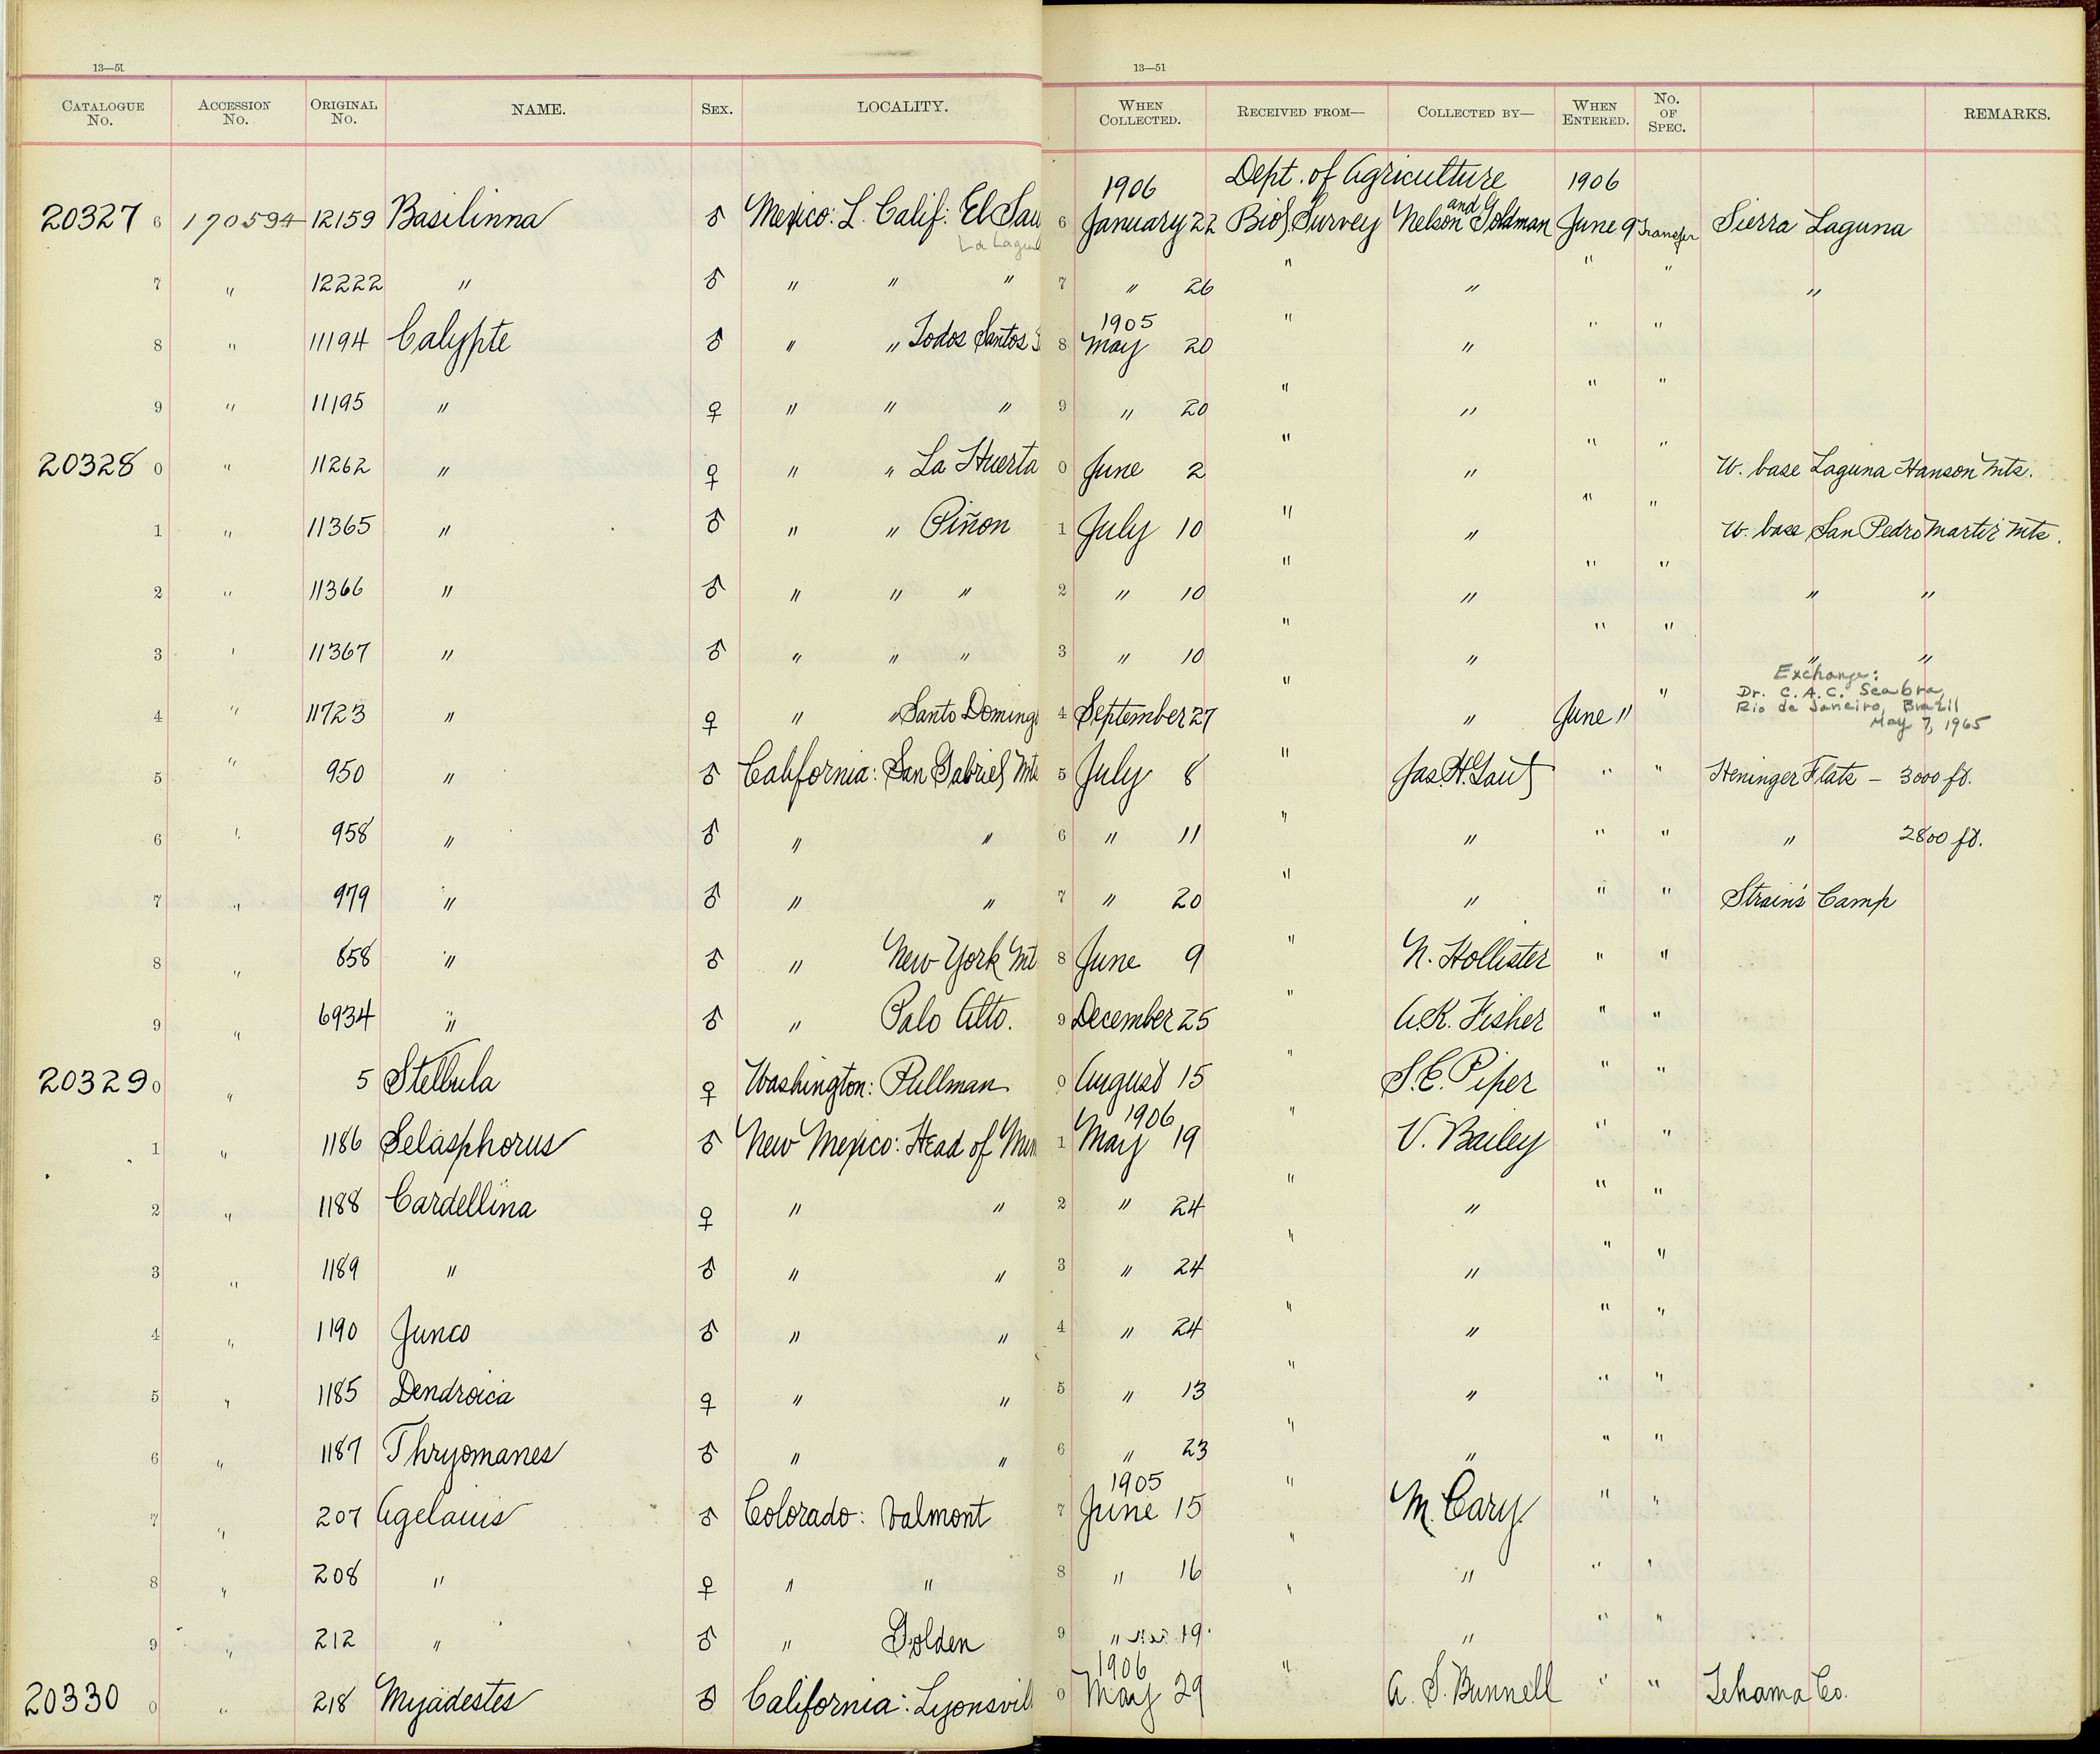 13—51 13—51
CATALOGUE No. ACCESSION No. ORIGINAL No. NAME. SEX. LOCALITY. WHEN COLLECTED. RECEIVED FROM— COLLECTED BY— WHEN ENTERED. No. OF SPEC. REMARKS.
1906 Dept. of Agriculture 1906
20327 6 170594 12159 Basilinna ♂ Mexico: L. Calif: El Sau 6 January 22 Biol. Survey Nelson and Goldman June 9 Transfer Sierra Laguna
La Lagun
7 " 12222 " ♂ " " " 7 " 26 " " " " "
1905
8 " 11194 Calypte ♂ " " Todos Santos 8 May 20 " " " "
9 " 11195 " ♀ " " " 9 " 20 " " " "
20328 0 " 11262 " ♀ " " La Huerta 0 June 2 " " " " W. base Laguna Hanson Mts.
1 " 11365 " ♂ " " Piñon 1 July 10 " " " " W. base San Pedro Martir Mts.
2 " 11366 " ♂ " " " 2 " 10 " " " " " "
3 " 11367 " ♂ " " " 3 " 10 " " " " " "
Exchange:
Dr. C. A. C. Seabra,
Rio de Janeiro, Brazil
May 7, 1965
4 " 11723 " ♀ " " Santo Doming 4 September 27 " " June 11 "
5 " 950 " ♂ California: San Gabriel Mts 5 July 8 " Jas. H. Gaut " " Heninger Flats – 3000 ft.
6 " 958 " ♂ " " 6 " 11 " " " " " 2800 ft.
7 " 979 " ♂ " " 7 " 20 " " " " Strain's Camp
8 " 658 " ♂ " New York Mt 8 June 9 " N. Hollister " "
9 " 6934 " ♂ " Palo Alto. 9 December 25 " A.K. Fisher " "
20329 0 " 5 Stellula ♀ Washington: Pullman 0 August 15 " S.E. Piper " "
1906
1 " 1186 Selasphorus ♂ New Mexico: Head of Mim 1 May 19 " V. Bailey " "
2 " 1188 Cardellina ♀ " " 2 " 24 " " " "
3 " 1189 " ♂ " " 3 " 24 " " " "
4 " 1190 Junco ♂ " " 4 " 24 " " " "
5 " 1185 Dendroica ♀ " " 5 " 13 " " " "
6 " 1187 Thryomanes ♂ " " 6 " 23 " " " "
1905
7 " 207 Agelaius ♂ Colorado: Valmont 7 June 15 " M. Cary " "
8 " 208 " ♀ " " 8 " 16 " " " "
9 " 212 " ♂ " Golden 9 " 19. " " "
1906
20330 0 " 218 Myadestes ♂ California: Lyonsvill 0 May 29 " A. S. Bunnell " " Tehama Co.